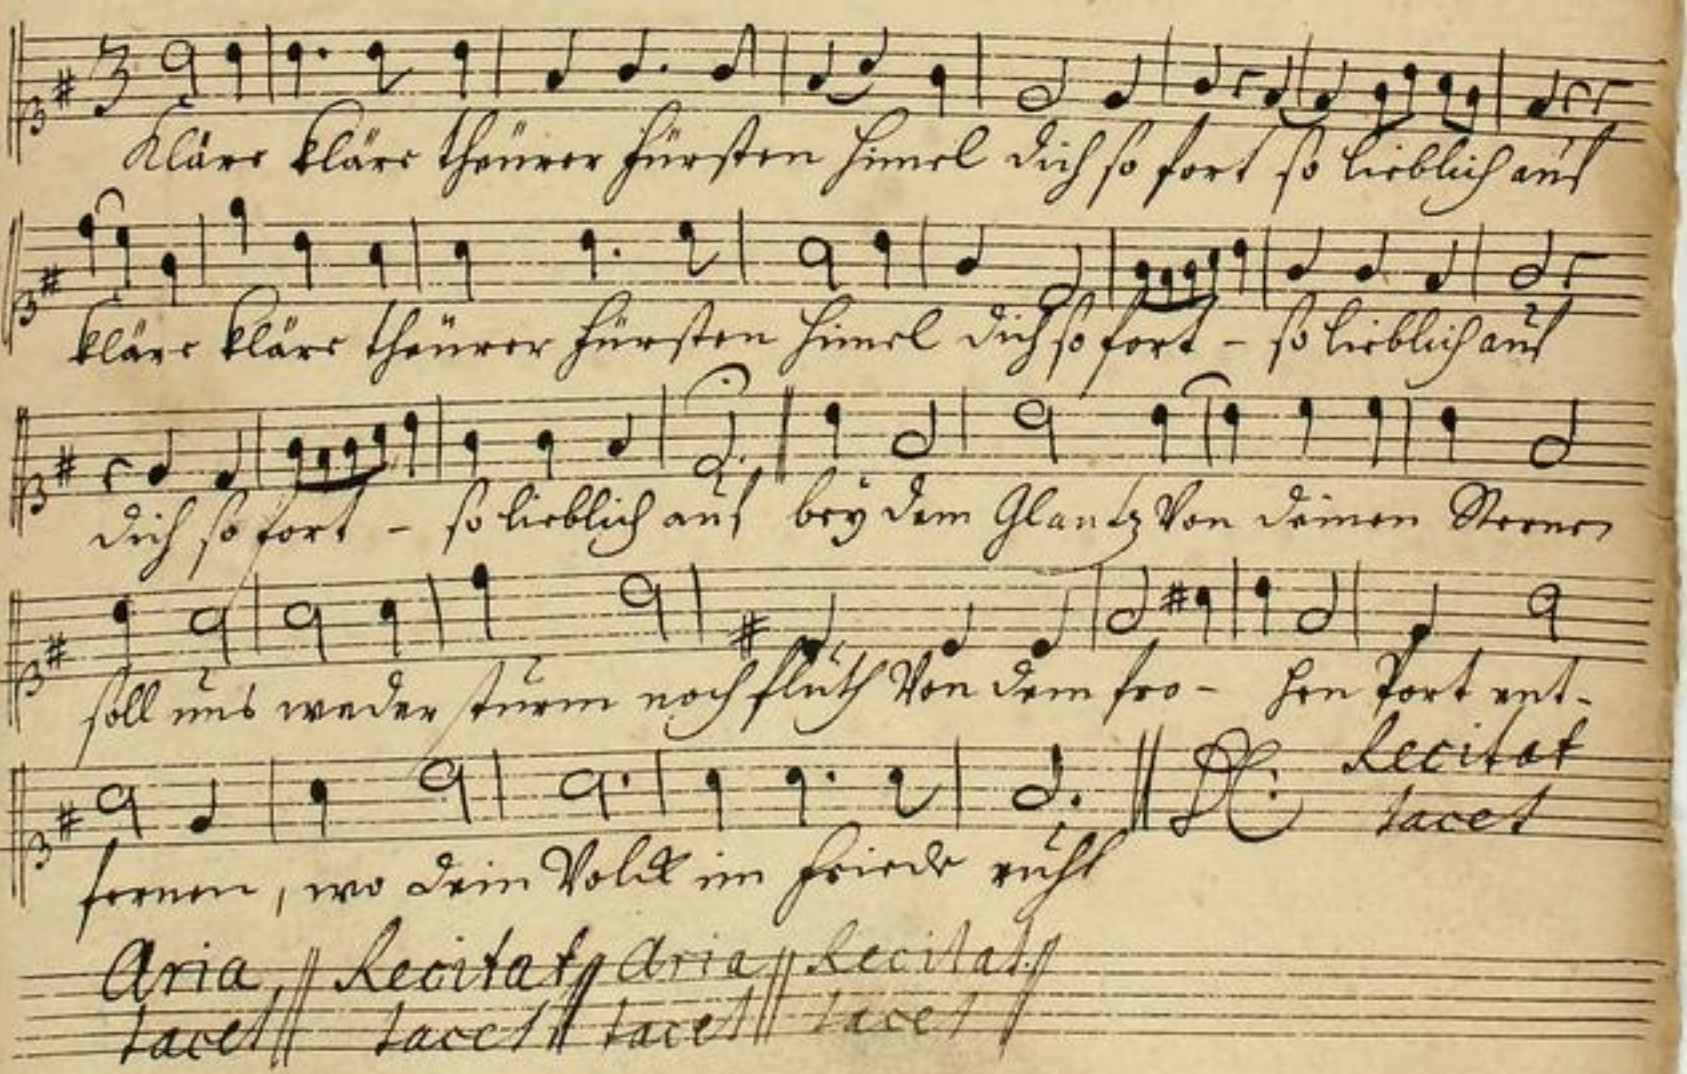 Kläre kläre theürer Fürsten Himel dich so fort so lieblich auf
kläre kläre theürer Fürsten Himel dich so fort - so lieblich auf
dich so fort - so lieblich auf bey dem Glantz Von deinen Sternen
soll uns weder sturm noch fluth Von dem fro- hen Port ent-
DC: Recitat
tacet
fernen, wo dein Volck im Friede ruht
Aria || Recitat || Aria || Recitat ||
tacet || tacet || tacet || tacet